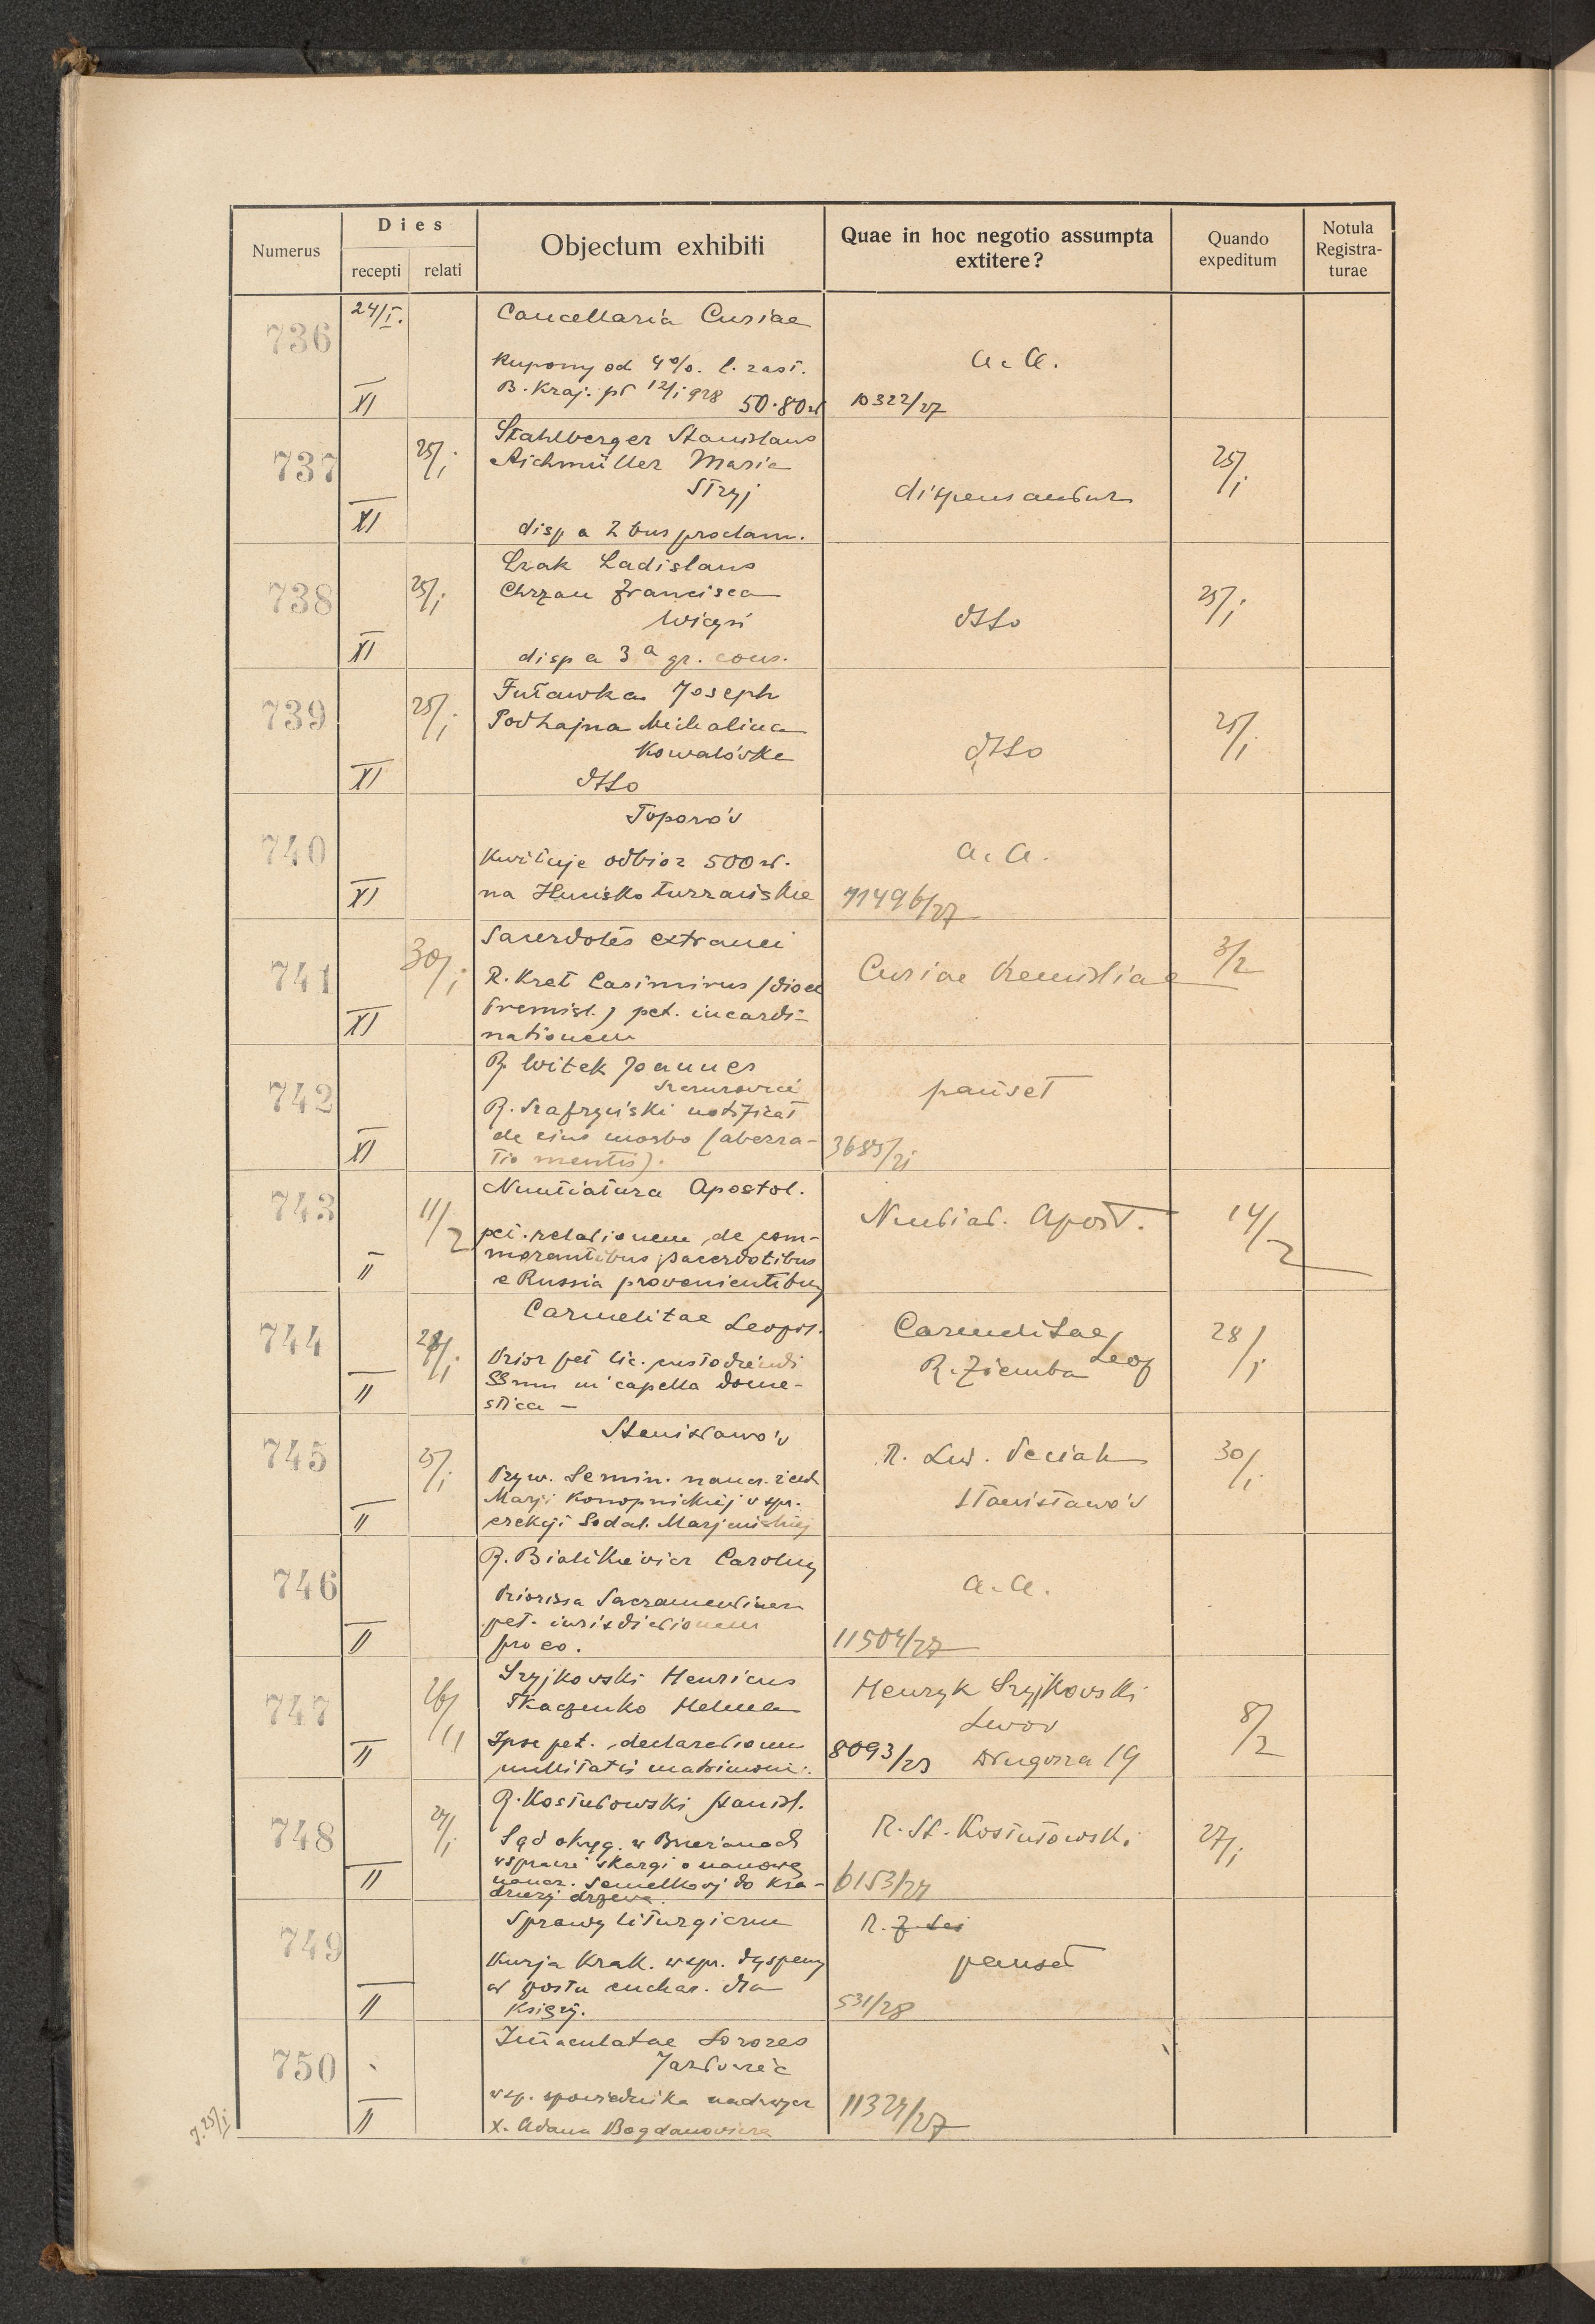 Numerus
Dies
recepti relati
Objectum exhibiti
Quae in hoc negotio assumpta
extitere?
Quando
expeditum
Notula
Registra-
turae
736
24/I.
XI
Cancellaria Curiae
Kupony od 4%. l. zast.
B. Kraj. pł 12/I 928 50.80 zł
a. a.
10322/27
737
XI
25/I
Stahlberger Stanislaus
Aichmüller Maria
Stryj
disp a 2bus proclam.
dispensantur
25/I
738
XI
25/I
Żrak Ladislaus
Chrzan Francisca
Wicyń
disp a 3a gr. cons.
dtto
25/I
739
XI
25/I
Futawka Joseph
Podhajna Michalina
Kowalówka
dtto
dtto
25/I
740
XI
Toporów
Kwituje odbiór 500 zł.
na Hucisko turzańskie
a. a.
11496/27
741
XI
30/I
Sacerdotes extranei
R. Kret Casimirus (dioec
Premisl.) pet. incardi-
nationem
Curiae Premisliae
3/2
742
XI
R. Witek Joannes
R. Szafryński notificat
de eius morbo (aberra-
tio mentis).
pauset
3685/21
743
II
11/2
Nuntiatura Apostol.
pet. relationem de com-
morantibus sacerdotibus
e Russia provenientibus
Nuntiat. Apost.
14/2
744
II
28/I
Carmelitae Leopol.
Prior pet lic. custodiendi
SSmum in capella dome-
stica —
Carmelitae Leop
R. Ziemba
28/I
745
II
25/I
Stanisławów
Pryw. Semin. naucz. żeńs
Marji Konopnickiej w spr.
erekcji Sodal. Marjańskiej
R. Lud. Peciak
Stanisławów
30/I
746
II
R. Bialikiewicz Carolus
Priorissa Sacramentinen
pet. iurisdictionem
pro eo.
a. a.
11504/27
747
II
26/11
Szyjkowski Henricus
Tkaczenko Helena
Ipse pet. declarationem
nullitatis matrimonii.
Henryk Szyjkowski
Lwów
8093/23 Długosza 19
8/2
748
II
27/I
R. Kosturowski Stanisl.
Sąd okręg. w Brzeżanach
w sprawie skargi o namowę
naucz. Semelkowej do kra-
dzieży drzewa.
R. St. Kosturowski
6153/27
27/I
749
II
Sprawy liturgiczne
Kurja Krak. w spr. dyspensy
od postu euchar. dla
Księży.
R.
pauset
531/28
750
II
Immaculatae Sorores
Jazłowiec
w sp. spowiednika nadzwycz
X. Adama Bogdanowicza
11324/27
J. 25/I